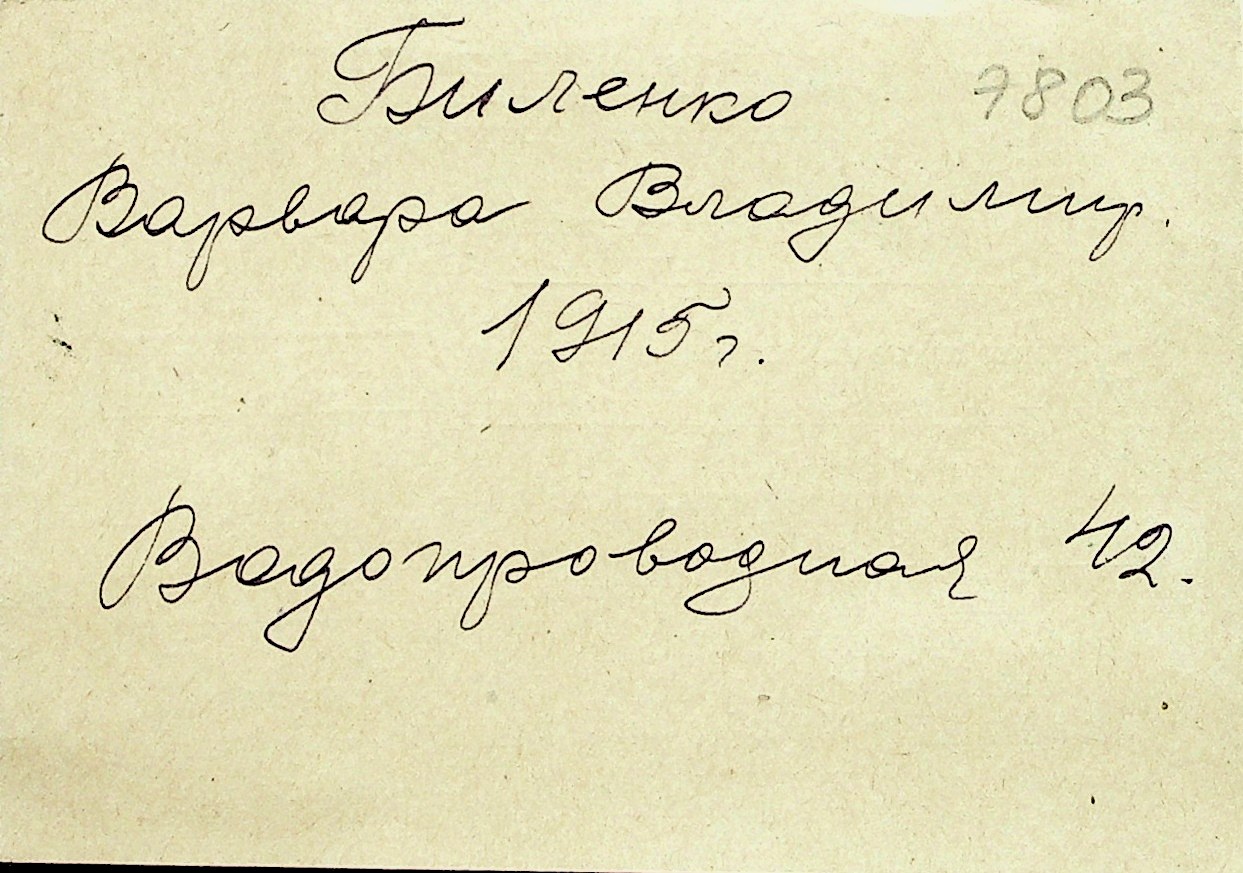 Биленко 7803
Варвара Владимир.
1915 г.
Водопроводная 42.